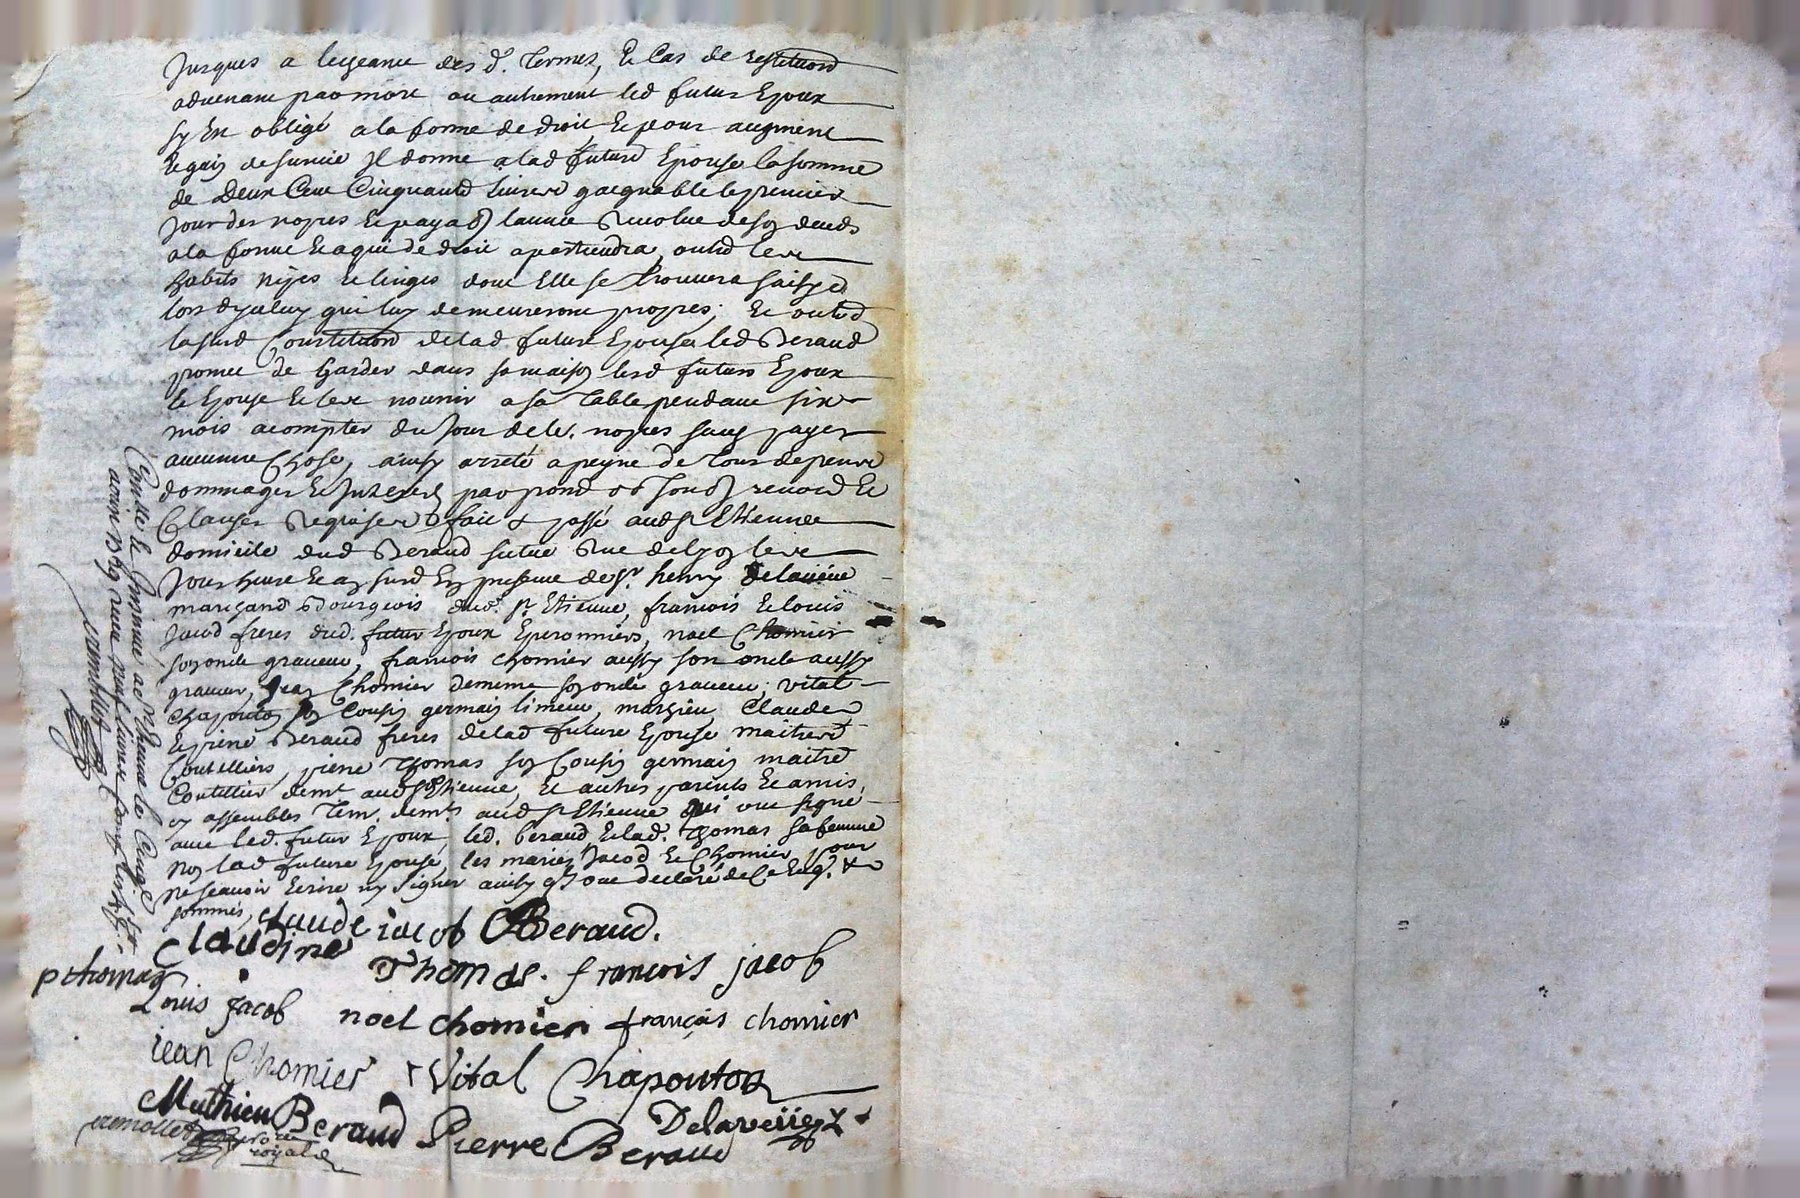 Jusques a lecheance des d. Termes, Et Cas de restitution
advenant par mort ou autrement led futur Epoux
sy Est obligé a la forme de droit, Et pour augment
Et gain de survie Il donne a lad future Epouse la somme
de Deux Cent Cinquante livres gaegnable le premier
Jour des nopces Et payable lannée Revolue de son deceds
a la forme Et a qui de droit apartiendra, outre les
habits nipes Et linges dont Elle se trouvera saisye
lors dyceluy qui luy demeureront propres; Et outre
la susd Constitution de lad future Epouse led Beraud
promet de Garder dans sa maison lesd futurs Epoux
Et Epouse Et les nourrir a sa Table pendant six
mois a compter du Jour de les. nopces sans payer
aucune Chose, ainsy arreté a peyne de tous depens
dommages Et Interets par
Clauses Requises fait & passé aud St Etienne
domicile dud Beraud située Rue de Lyon les
Jour heure Et an susd En presence de Sr. henry Delaveüe
marchand Bourgeois dud. St Etienne, francois Et louis
Jacod freres dud. futur Epoux Eperonniers, noel Chomier
son oncle graveur, francois chomier aussy son oncle aussy
graveur, Jean Chomier de meme son oncle graveur, vital
Chapouton son Cousin germain limeur, mathieu Claude
Et pierre Beraud freres de lad future Epouse maitres
Coutelliers, pierre Thomas son Cousin germain maitre
Coutellier demt aud St Etienne, Et autres parents Et amis
assembles Tem. demts aud St Etienne qui ont signé
avec led. futur Epoux, led. beraud Et lad. Thomas sa femme
non lad future Epouse, les mariés Jacod Et Chomier pour
ne scavoir Ecrire ny signer ainsy qls ont declaré de Ce Enqs. &
sommés,
claude iacob Beraud.
Claudine Thomas. francois jacob
p thomas
Louis jacob noel chomier françois chomier
jean Chomier Vital Chapouton
Mathieu Beraud Pierre Beraud Delaveüe
royal
Controllé Et Insinué a St Etienne le